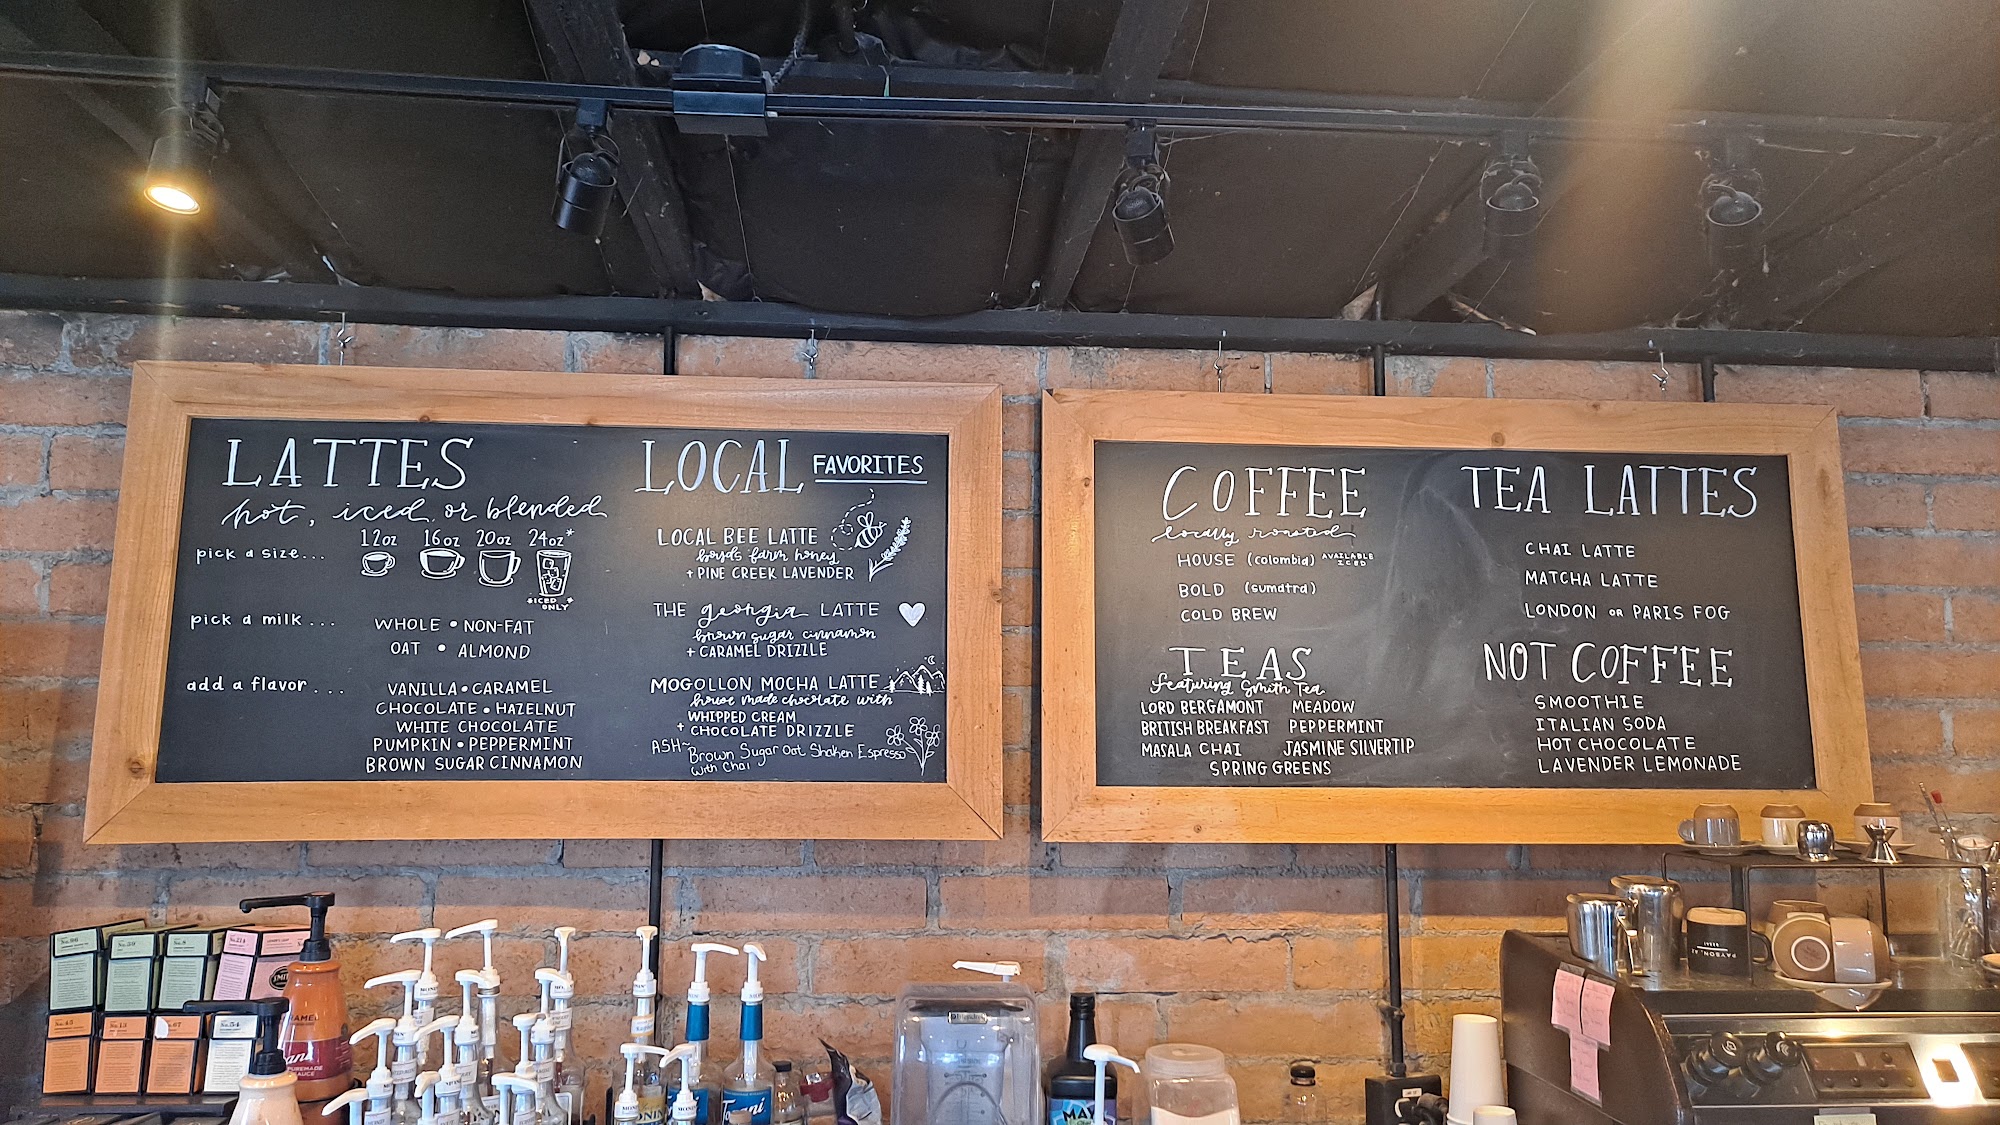 LATTES
hot, iced, or blended
pick a size...
12oz 16oz 20oz 24oz*
*ICED ONLY*
pick a milk...
WHOLE • NON-FAT
OAT • ALMOND
add a flavor...
VANILLA • CARAMEL
CHOCOLATE • HAZELNUT
WHITE CHOCOLATE
PUMPKIN • PEPPERMINT
BROWN SUGAR CINNAMON
LOCAL FAVORITES
LOCAL BEE LATTE
boyds farm honey
+ PINE CREEK LAVENDER
THE georgia LATTE
brown sugar cinnamon
+ CARAMEL DRIZZLE
MOGOLLON MOCHA LATTE
house made chocolate with
WHIPPED CREAM
+ CHOCOLATE DRIZZLE
ASH~ Brown Sugar Oat Shaken Espresso
With Chai
COFFEE
locally roasted
HOUSE (colombia) AVAILABLE ICED
BOLD (sumatra)
COLD BREW
TEAS
featuring Smith Tea
LORD BERGAMONT MEADOW
BRITISH BREAKFAST PEPPERMINT
MASALA CHAI JASMINE SILVERTIP
SPRING GREENS
TEA LATTES
CHAI LATTE
MATCHA LATTE
LONDON OR PARIS FOG
NOT COFFEE
SMOOTHIE
ITALIAN SODA
HOT CHOCOLATE
LAVENDER LEMONADE
PAYSON, AZ